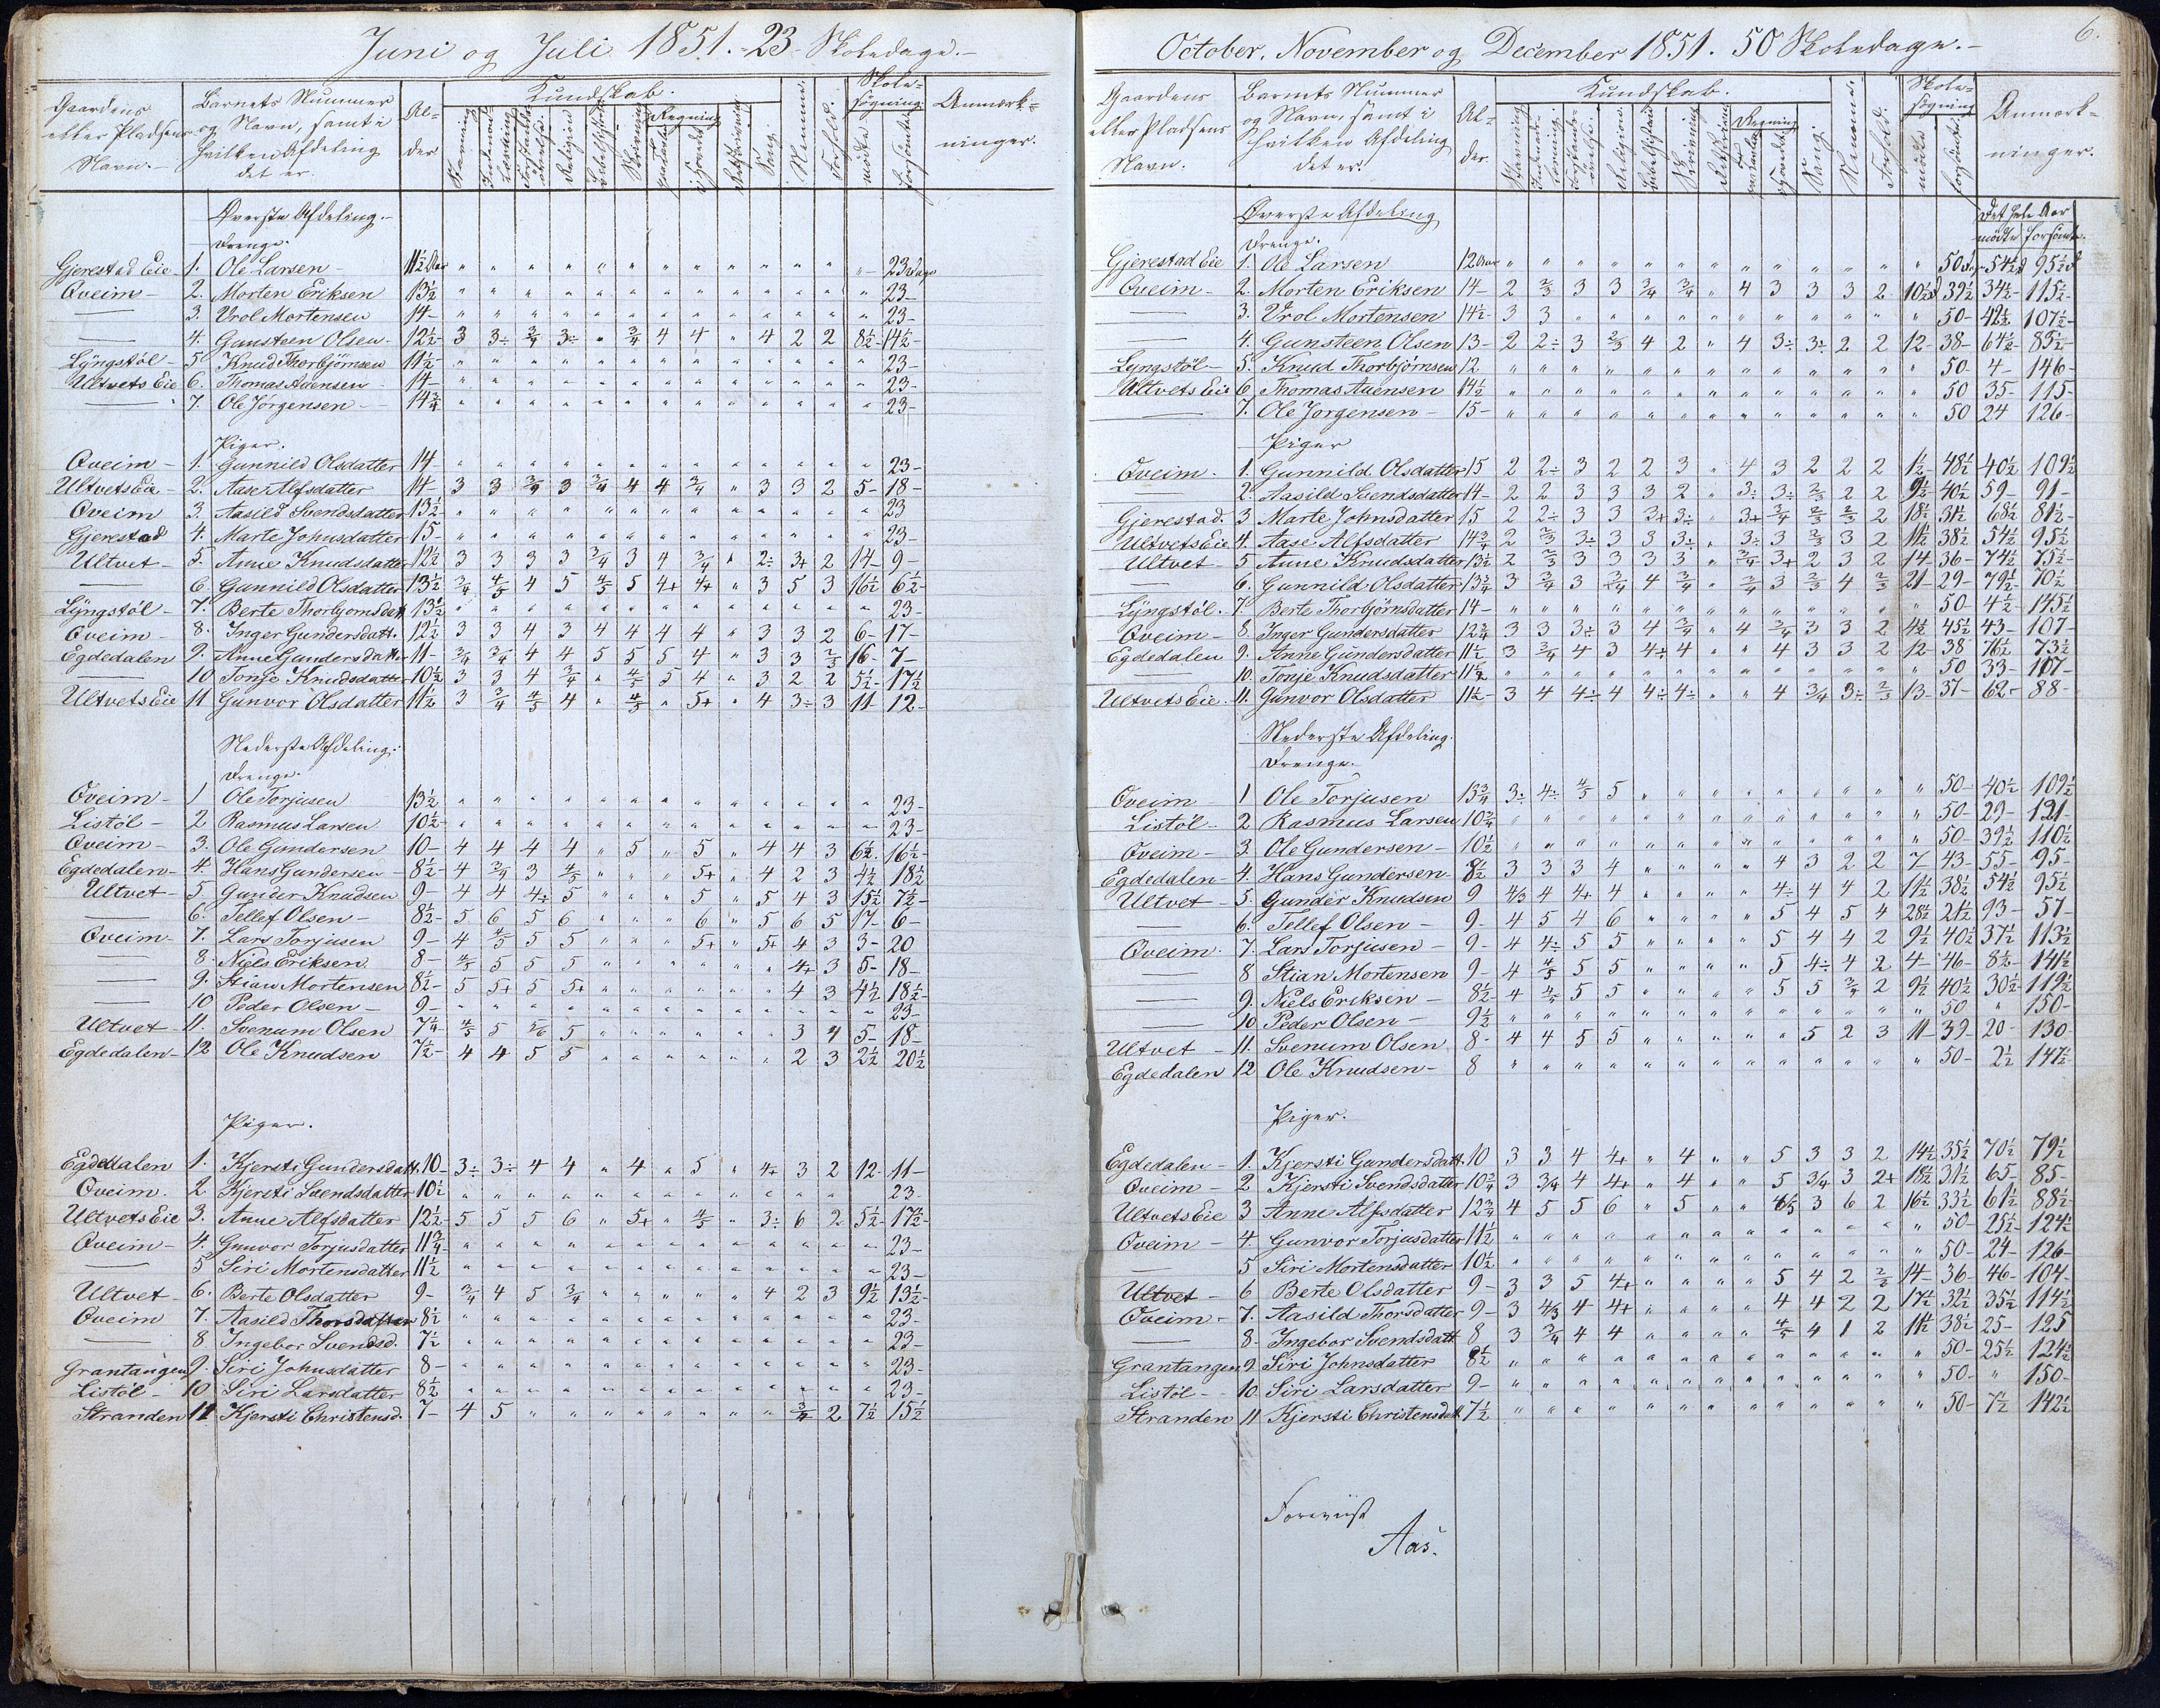 Juni og Juli 1851. 23 Skoledage.
Gaardens eller Pladsens Navn. Barnets Nummer og Navn, samt i hvilken Afdeling det er. Alder Kundskab. Regning i Hovedet Sang Nemme. Forhold. Skolesøgning mødte forsømte Anmærkninger.
Øverste Afdeling.
Drenge.
Gjerestad Eie 1. Ole Larsen 11½ Aar " " " " " " " " " " " " " 23 Dage
Qveim 2. Morten Eriksen 13½ " " " " " " " " " " " " " 23
— 3. Vrol Mortensen 14 " " " " " " " " " " " " " 23
— 4. Gunsteen Olsen 12½ 3 3÷ 3/4 3÷ " 3/4 4 4 " 4 2 2 8½ 14½
Lyngstøl 5 Knud Thorbjørnsen 11½ " " " " " " " " " " " " " 23
Ultvets Eie 6. Thomas Auensen 14 " " " " " " " " " " " " " 23
— 7. Ole Jørgensen 14¾ " " " " " " " " " " " " " 23
Piger.
Qveim 1. Gunnild Olsdatter 14 " " " " " " " " " " " " " 23
Ultvets Eie 2. Aase Alfsdatter 14 3 3 3/4 3 3/4 4 4 3/4 " 3 3 2 5 18
Qveim 3 Aasild Svendsdatter 13½ " " " " " " " " " " " " " 23
Gjerestad 4. Marte Johnsdatter 15 " " " " " " " " " " " " " 23
Ultvet 5. Anne Knudsdatter 12½ 3 3 3 3 3/4 3 4 3/4 " 2÷ 3+ 2 14 9
— 6. Gunnild Olsdatter 13½ 3/4 4/5 4 5 4/5 5 4+ 4+ " 3 5 3 16½ 6½
Lyngstøl 7. Berte Thorbjornsdatt 13½ " " " " " " " " " " " " " 23
Qveim 8. Inger Gundersdatt. 12½ 3 3 4 3 4 4 4 4 " 3 3 2 6 17
Egdedalen 9. Anne Gundersdatter 11 3/4 3/4 4 4 5 5 5 4 " 3 3 2/3 16 7
— 10 Tonje Knudsdatter 10½ 3 3 4 3/4 " 4/5 5 4 " 3 2 2 5½ 17½
Ultvets Eie 11 Gunvor Olsdatter 11½ 3 3/4 4/5 4 " 4/5 " 5+ " 4 3÷ 3 11 12
Nederste Afdeling.
Drenge.
Qveim 1 Ole Torjusen 13½ " " " " " " " " " " " " " 23
Listøl 2 Rasmus Larsen 10½ " " " " " " " " " " " " " 23
Qveim 3. Ole Gundersen 10 4 4 4 4 " 5 " 5 " 4 4 3 6½ 16½
Egdedalen 4. Hans Gundersen 8½ 4 3/4 3 4/5 " " " 5+ " 4 2 3 4½ 18½
Ultvet 5 Gunder Knudsen 9 4 4 4÷ 5 " " " 5 " 5 4 3 15½ 7½
— 6. Tellef Olsen 8½ 5 6 5 6 " " " 6 " 5 6 5 17 6
Qveim 7. Lars Torjusen 9 4 4/5 5 5 " " " 5+ " 5+ 4 3 3 20
— 8. Niels Eriksen 8 4/5 5 5 5 " " " " " " 4+ 3 5 18
— 9. Stian Mortensen 8½ 5 5+ 5 5+ " " " " " " 4 3 4½ 18½
— 10 Peder Olsen 9 " " " " " " " " " " " " " 23
Ultvet 11. Svenum Olsen 7¼ 4/5 5 5/6 5 " " " " " " 3 4 5 18
Egdedalen 12 Ole Knudsen 7½ 4 4 5 5 " " " " " " 2 3 2½ 20½
Piger.
Egdedalen 1. Kjersti Gundersdatt. 10 3÷ 3÷ 4 4 " 4 " 5 " 4+ 3 2 12 11
Qveim. 2 Kjersti Svendsdatter 10½ " " " " " " " " " " " " " 23
Ultvets Eie 3. Anne Alfsdatter 12½ 5 5 5 6 " 5+ " 4/5 " 3÷ 6 2 5½ 17½
Qveim 4. Gunvor Torjusdatter 11¾ " " " " " " " " " " " " " 23
— 5 Siri Mortensdatter 11½ " " " " " " " " " " " " " 23
Ultvet 6. Berte Olsdatter 9 3/4 4 5 3/4 " " " " " 4 2 3 9½ 13½
Qveim 7. Aasild Thorsdatter 8½ " " " " " " " " " " " " " 23
— 8 Ingebor Svendsd. 7½ " " " " " " " " " " " " " 23
Grantangen 9. Siri Johnsdatter 8 " " " " " " " " " " " " " 23
Listøl 10 Siri Larsdatter 8½ " " " " " " " " " " " " " 23
Stranden 11 Kjersti Christensd. 7 4 5 " " " " " " " " 3/4 2 7½ 15½
October, November og December 1851. 50 Skoledage. 6.
Gaardens eller Pladsens Navn. Barnets Nummer og Navn, samt i hvilken Afdeling det er. Alder. Kundskab. Religion Skrivning Regning Sang Nemme Forhold. Skolesøgning mødte forsømte Anmærkninger.
Øverste Afdeling Det hele Aar
Drenge. mødte forsømte.
Gjerestad Eie 1. Ole Larsen 12 Aar " " " " " " " " " " " " " 50 54½ 95½
Qveim 2. Morten Eriksen 14 2 2/3 3 3 3/4 3/4 " 4 3 3 3 2 10½ 39½ 34½ 115½
— 3. Vrol Mortensen 14½ 3 3 " " " " " " " " " " " 50 42½ 107½
— 4. Gunsteen Olsen 13 2 2÷ 3 2/3 4 2 " 4 3÷ 3÷ 2 2 12 38 64½ 85½
Lyngstøl 5. Knud Thorbjørnsen 12 " " " " " " " " " " " " " 50 4 146
Ultvets Eie 6 Thomas Auensen 14½ " " " " " " " " " " " " " 50 35 115
— 7. Ole Jorgensen 15 " " " " " " " " " " " " " 50 24 126
Piger
Qveim. 1. Gunnild Olsdatter 15 2 2÷ 3 2 2 3 " 4 3 2 2 2 1½ 48½ 40½ 109½
— 2. Aasild Svendsdatter 14 2 2 3 3 3 2 " 3÷ 3÷ 2/3 2 2 9½ 40½ 59 91
Gjerestad. 3 Marte Johnsdatter 15 2 2÷ 3 3 3+ 3÷ " 3+ 3/4 2/3 2/3 2 18½ 31½ 68½ 81½
Ultvets Eie 4. Aase Alfsdatter 14¾ 2 2/3 3÷ 3 3 3÷ " 3÷ 3 2/3 3 2 11½ 38½ 54½ 95½
Ultvet 5 Anne Knudsdatter 13½ 2 2/3 3 3 3 3 " 3/4 3+ 2 3 2 14 36 74½ 75½
— 6. Gunnild Olsdatter 13¾ 3 3/4 3 3/4 4 3/4 " 3/4 3 2/3 4 2/3 21 29 79½ 70½
Lyngstøl. 7. Berte Thorbjørnsdatter 14 " " " " " " " " " " " " " 50 4½ 145½
Qveim 8. Inger Gundersdatter 12¾ 3 3 3÷ 3 4 3/4 " 4 3/4 3 3 2 4½ 45½ 43 107
Egdedalen 9. Anne Gundersdatter 11½ 3 3/4 4 3 4÷ 4 " " 4 3 3 2 12 38 76½ 73½
— 10. Tonje Knudsdatter 11½ " " " " " " " " " " " " " 50 33 107
Ultvets Eie. 11. Gunvor Olsdatter 11½ 3 4 4÷ 4 4÷ 4÷ " " 4 3/4 3÷ 2/3 13 37 62 88
Nederste Afdeling.
Drenge.
Qveim 1 Ole Torjusen 13¾ 3÷ 4÷ 4/5 5 " " " " " " " " " 50 40½ 109½
Listøl 2 Rasmus Larsen 10¾ " " " " " " " " " " " " " 50 29 121
Qveim 3. Ole Gundersen 10½ " " " " " " " " " " " " " 50 39½ 110½
Egdedalen 4. Hans Gundersen 8½ 3 3 3 4 " " " " 4 3 2 2 7 43 55 95
Ultvet 5. Gunder Knudsen 9 4/3 4 4+ 4 " " " " 4÷ 4 4 2 11½ 38½ 54½ 95½
— 6. Tellef Olsen 9 4 5 4 6 " " " " 5 4 5 4 28½ 21½ 93 57
Qveim. 7. Lars Torjusen 9 4 4÷ 5 5 " " " " 5 4 4 2 9½ 40½ 37½ 113½
— 8 Stian Mortensen 9 4 4/5 5 5 " " " " 5 4÷ 4 2 4 46 8½ 141½
— 9. Niels Eriksen 8½ 4 4/5 5 5 " " " " 5 5 3/4 2 9½ 40½ 30½ 119½
— 10 Peder Olsen 9½ " " " " " " " " " " " " " 50 " 150
Ultvet 11. Svenum Olsen 8 4 4 5 5 " " " " " 5 2 3 11 39 20 130
Egdedalen 12 Ole Knudsen 8 " " " " " " " " " " " " " 50 2½ 147½
Piger.
Egdedalen 1. Kjersti Gundersdatt. 10 3 3 4 4+ " 4 " " 5 3 3 2 14½ 35½ 70½ 79½
Qveim 2 Kjersti Svendsdatter 10¾ 3 3/4 4 4+ " 4 " " 5 3/4 3 2+ 18½ 31½ 65 85
Ultvets Eie 3 Anne Alfsdatter 12¾ 4 5 5 6 " 5 " " 4/5 3 6 2 16½ 33½ 61½ 88½
Qveim 4. Gunvor Torjusdatter 11½ " " " " " " " " " " " " " 50 25½ 124½
— 5 Siri Mortensdatter 10½ " " " " " " " " " " " " " 50 24 126
Ultvet 6 Berte Olsdatter 9 3 3 5 4+ " " " " 5 4 2 2/3 14 36 46 104
Qveim 7. Aasild Thorsdatter 9 3 4/3 4 4+ " " " " 4 4 2 2 17½ 32½ 35½ 114½
— 8. Ingebor Svendsdatt 8 3 3/4 4 4 " " " " 4/5 4 1 2 11½ 38½ 25 125
Grantangen 9. Siri Johnsdatter 8½ " " " " " " " " " " " " " 50 25½ 124½
Listøl 10. Siri Larsdatter 9 " " " " " " " " " " " " " 50 " 150
Stranden 11 Kjersti Christensdatt 7½ " " " " " " " " " " " " " 50 7½ 142½
Foreviist
Aas.